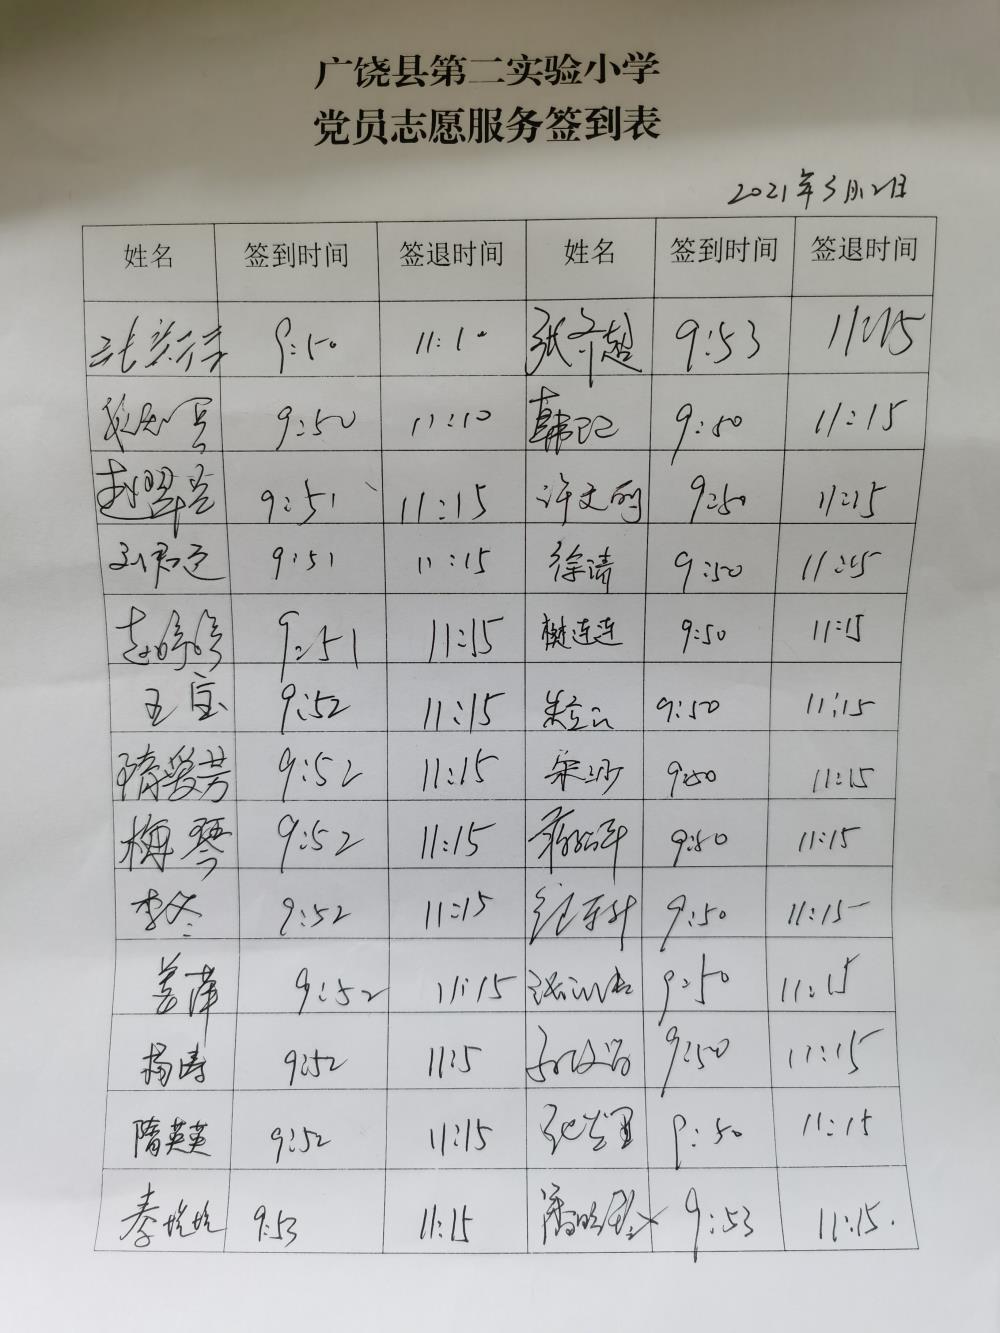 广饶县第二实验小学
党员志愿服务签到表
2021年3月12日
姓名 签到时间 签退时间 姓名 签到时间 签退时间
9:50 11:10 9:53 11:15
9:50 11:10 韩 9:50 11:15
赵翠 9:51 11:15 许文 9:50 11:15
9:51 11:15 徐清 9:50 11:15
赵婷婷 9:51 11:15 樊连连 9:50 11:15
王宝 9:52 11:15 朱立 9:50 11:15
隋爱芳 9:52 11:15 宋 9:50 11:15
梅琴 9:52 11:15 9:50 11:15
李冬 9:52 11:15 9:50 11:15
姜萍 9:52 11:15 9:50 11:15
杨涛 9:52 11:15 9:50 11:15
隋英英 9:52 11:15 9:50 11:15
秦悦悦 9:53 11:15 潘 9:53 11:15